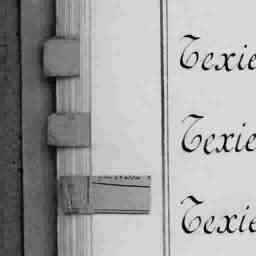 Texie
Texie
Texie